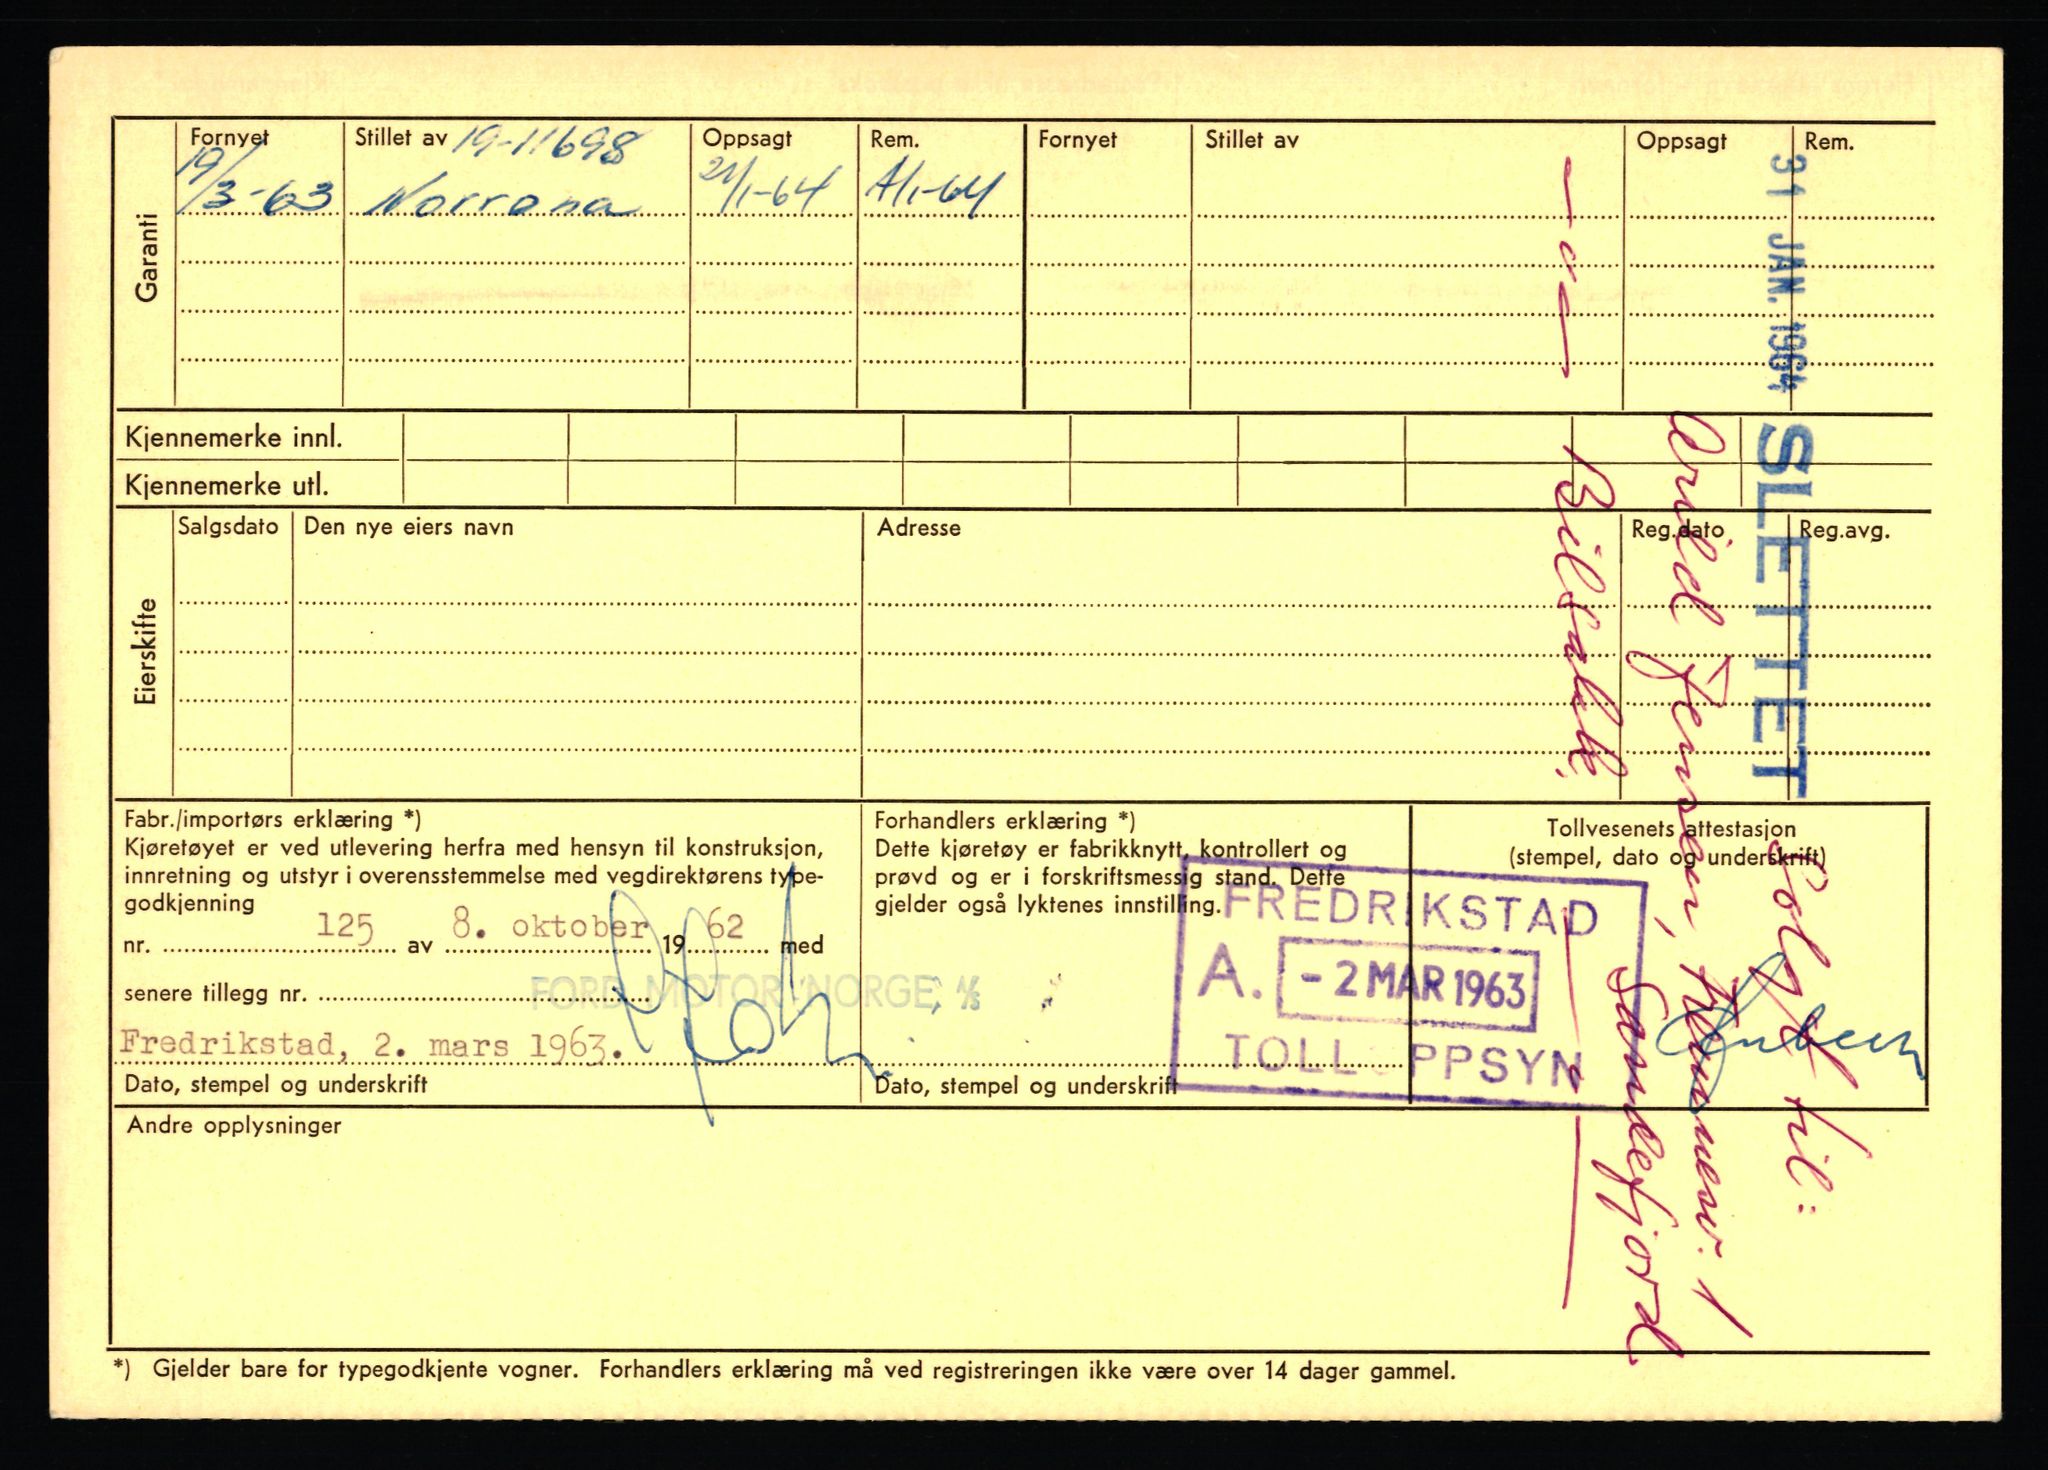 Garanti
Fornyet Stillet av 19-11698 Oppsagt Rem. Fornyet Stillet av Oppsagt Rem.
19/3-63 Norrøna 21/1-64 A/1-64
Kjennemerke innl.
Kjennemerke utl.
Eierskifte
Salgsdato Den nye eiers navn Adresse Reg.dato Reg.avg.
31 JAN. 1964
SLETTET
Solgt til:
Arvild Jensen,
Sandefjord
Bilsakk.
Fabr./importørs erklæring *)
Kjøretøyet er ved utlevering herfra med hensyn til konstruksjon,
innretning og utstyr i overensstemmelse med vegdirektørens type-
godkjenning
nr. 125 av 8. oktober 1962 med
senere tillegg nr.
FORD MOTOR NORGE, A/S
Fredrikstad, 2. mars 1963.
Dato, stempel og underskrift
Forhandlers erklæring *)
Dette kjøretøy er fabrikknytt, kontrollert og
prøvd og er i forskriftsmessig stand. Dette
gjelder også lyktenes innstilling.
Dato, stempel og underskrift
Tollvesenets attestasjon
(stempel, dato og underskrift)
FREDRIKSTAD
A. - 2 MAR 1963
TOLLOPPSYN
Andre opplysninger
*) Gjelder bare for typegodkjente vogner. Forhandlers erklæring må ved registreringen ikke være over 14 dager gammel.